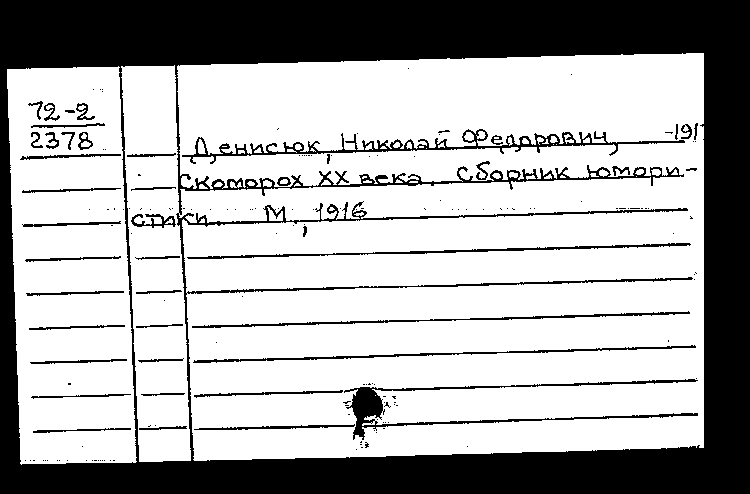 72-2
2378
Денисюк, Николай Федорович, -191
Скоморох XX века. Сборник юмори-
стики. М., 1916